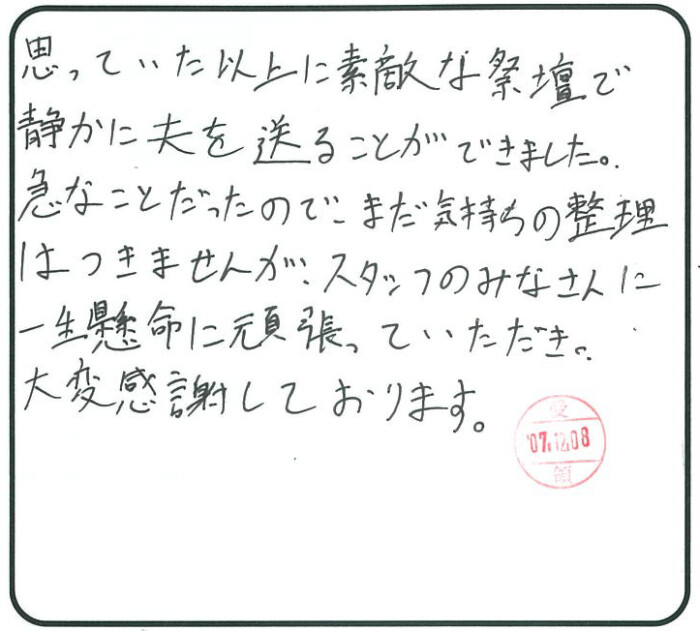 思っていた以上に素敵な祭壇で
静かに夫を送ることができました。
急なことだったので、まだ気持ちの整理
はつきませんが、スタッフのみなさんに
一生懸命に頑張っていただき。
大変感謝しております。
受
'07.12.08
領